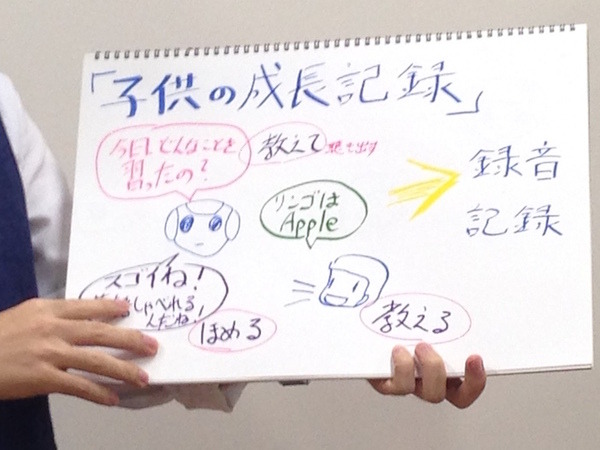 「子供の成長記録」
今日、どんなことを
習ったの?
教えて
リンゴは
Apple
録音
記録
スゴイね!
しゃべれる
んだね!
ほめる
教える